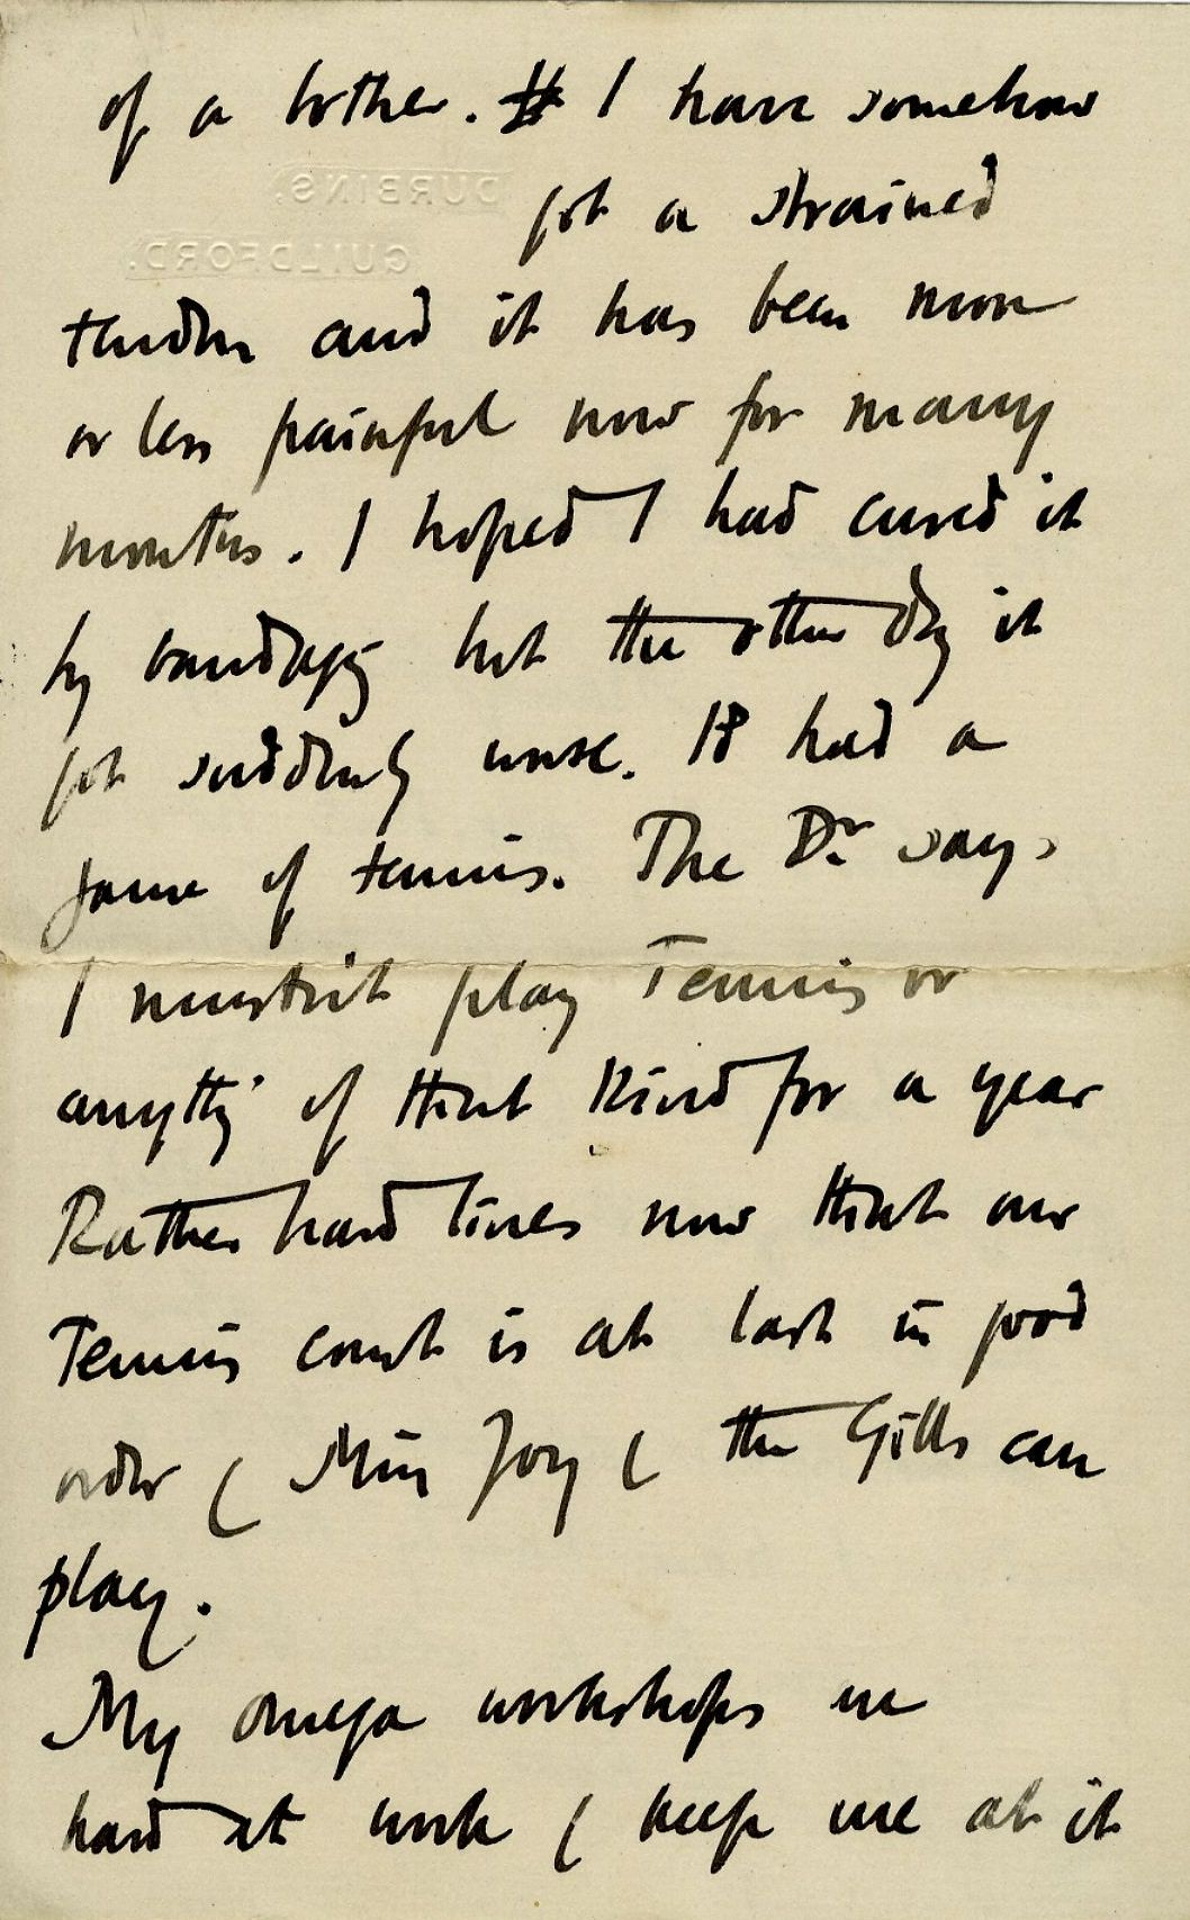 of a bother. I have somehow
DURBINS.
got a strained
GUILDFORD.
tendon and it has been more
or less painful now for many
months. I hoped I had cured it
by bandages but the other day it
got suddenly worse. I had a
game of tennis. The Dr. says
I mustn't play Tennis or
anythg of that kind for a year
Rather hard lines now that our
Tennis court is at last in good
order ( Miss Joy ( the Gills can
play.
My Omega workshops are
hard at work ( keep me at it